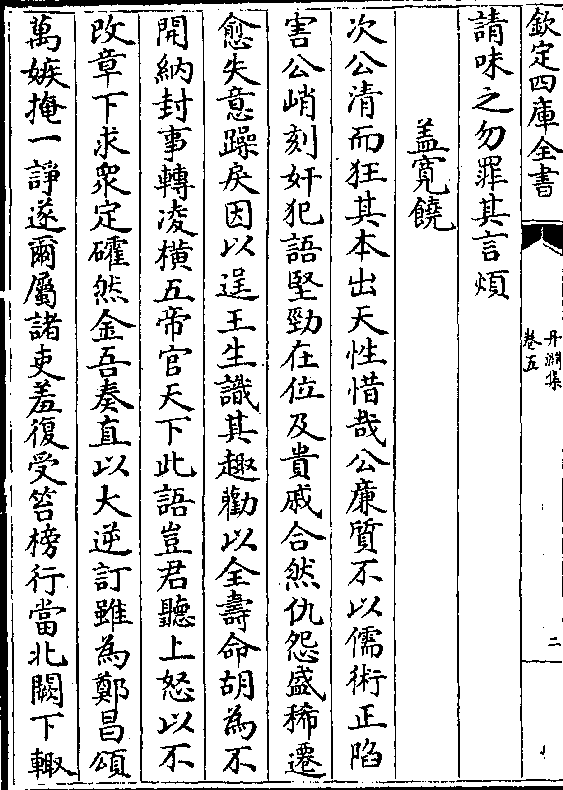 欽定四庫全書
丹淵集
卷五
二
請味之勿罪其言煩
盖寛饒
次公清而狂其本出天性惜哉公廉質不以儒術正陷
害公峭刻奸犯語堅勁在位及貴戚合然仇怨盛稀遷
愈失意躁戾因以逞王生識其趣勸以全壽命胡為不
開納封事轉凌横五帝官天下此語豈君聽上怒以不
改章下求衆定礭然金吾奏直以大逆訂雖為鄭昌頌
萬嫉掩一諍遂爾屬諸吏羞復受笞榜行當北闕下輙